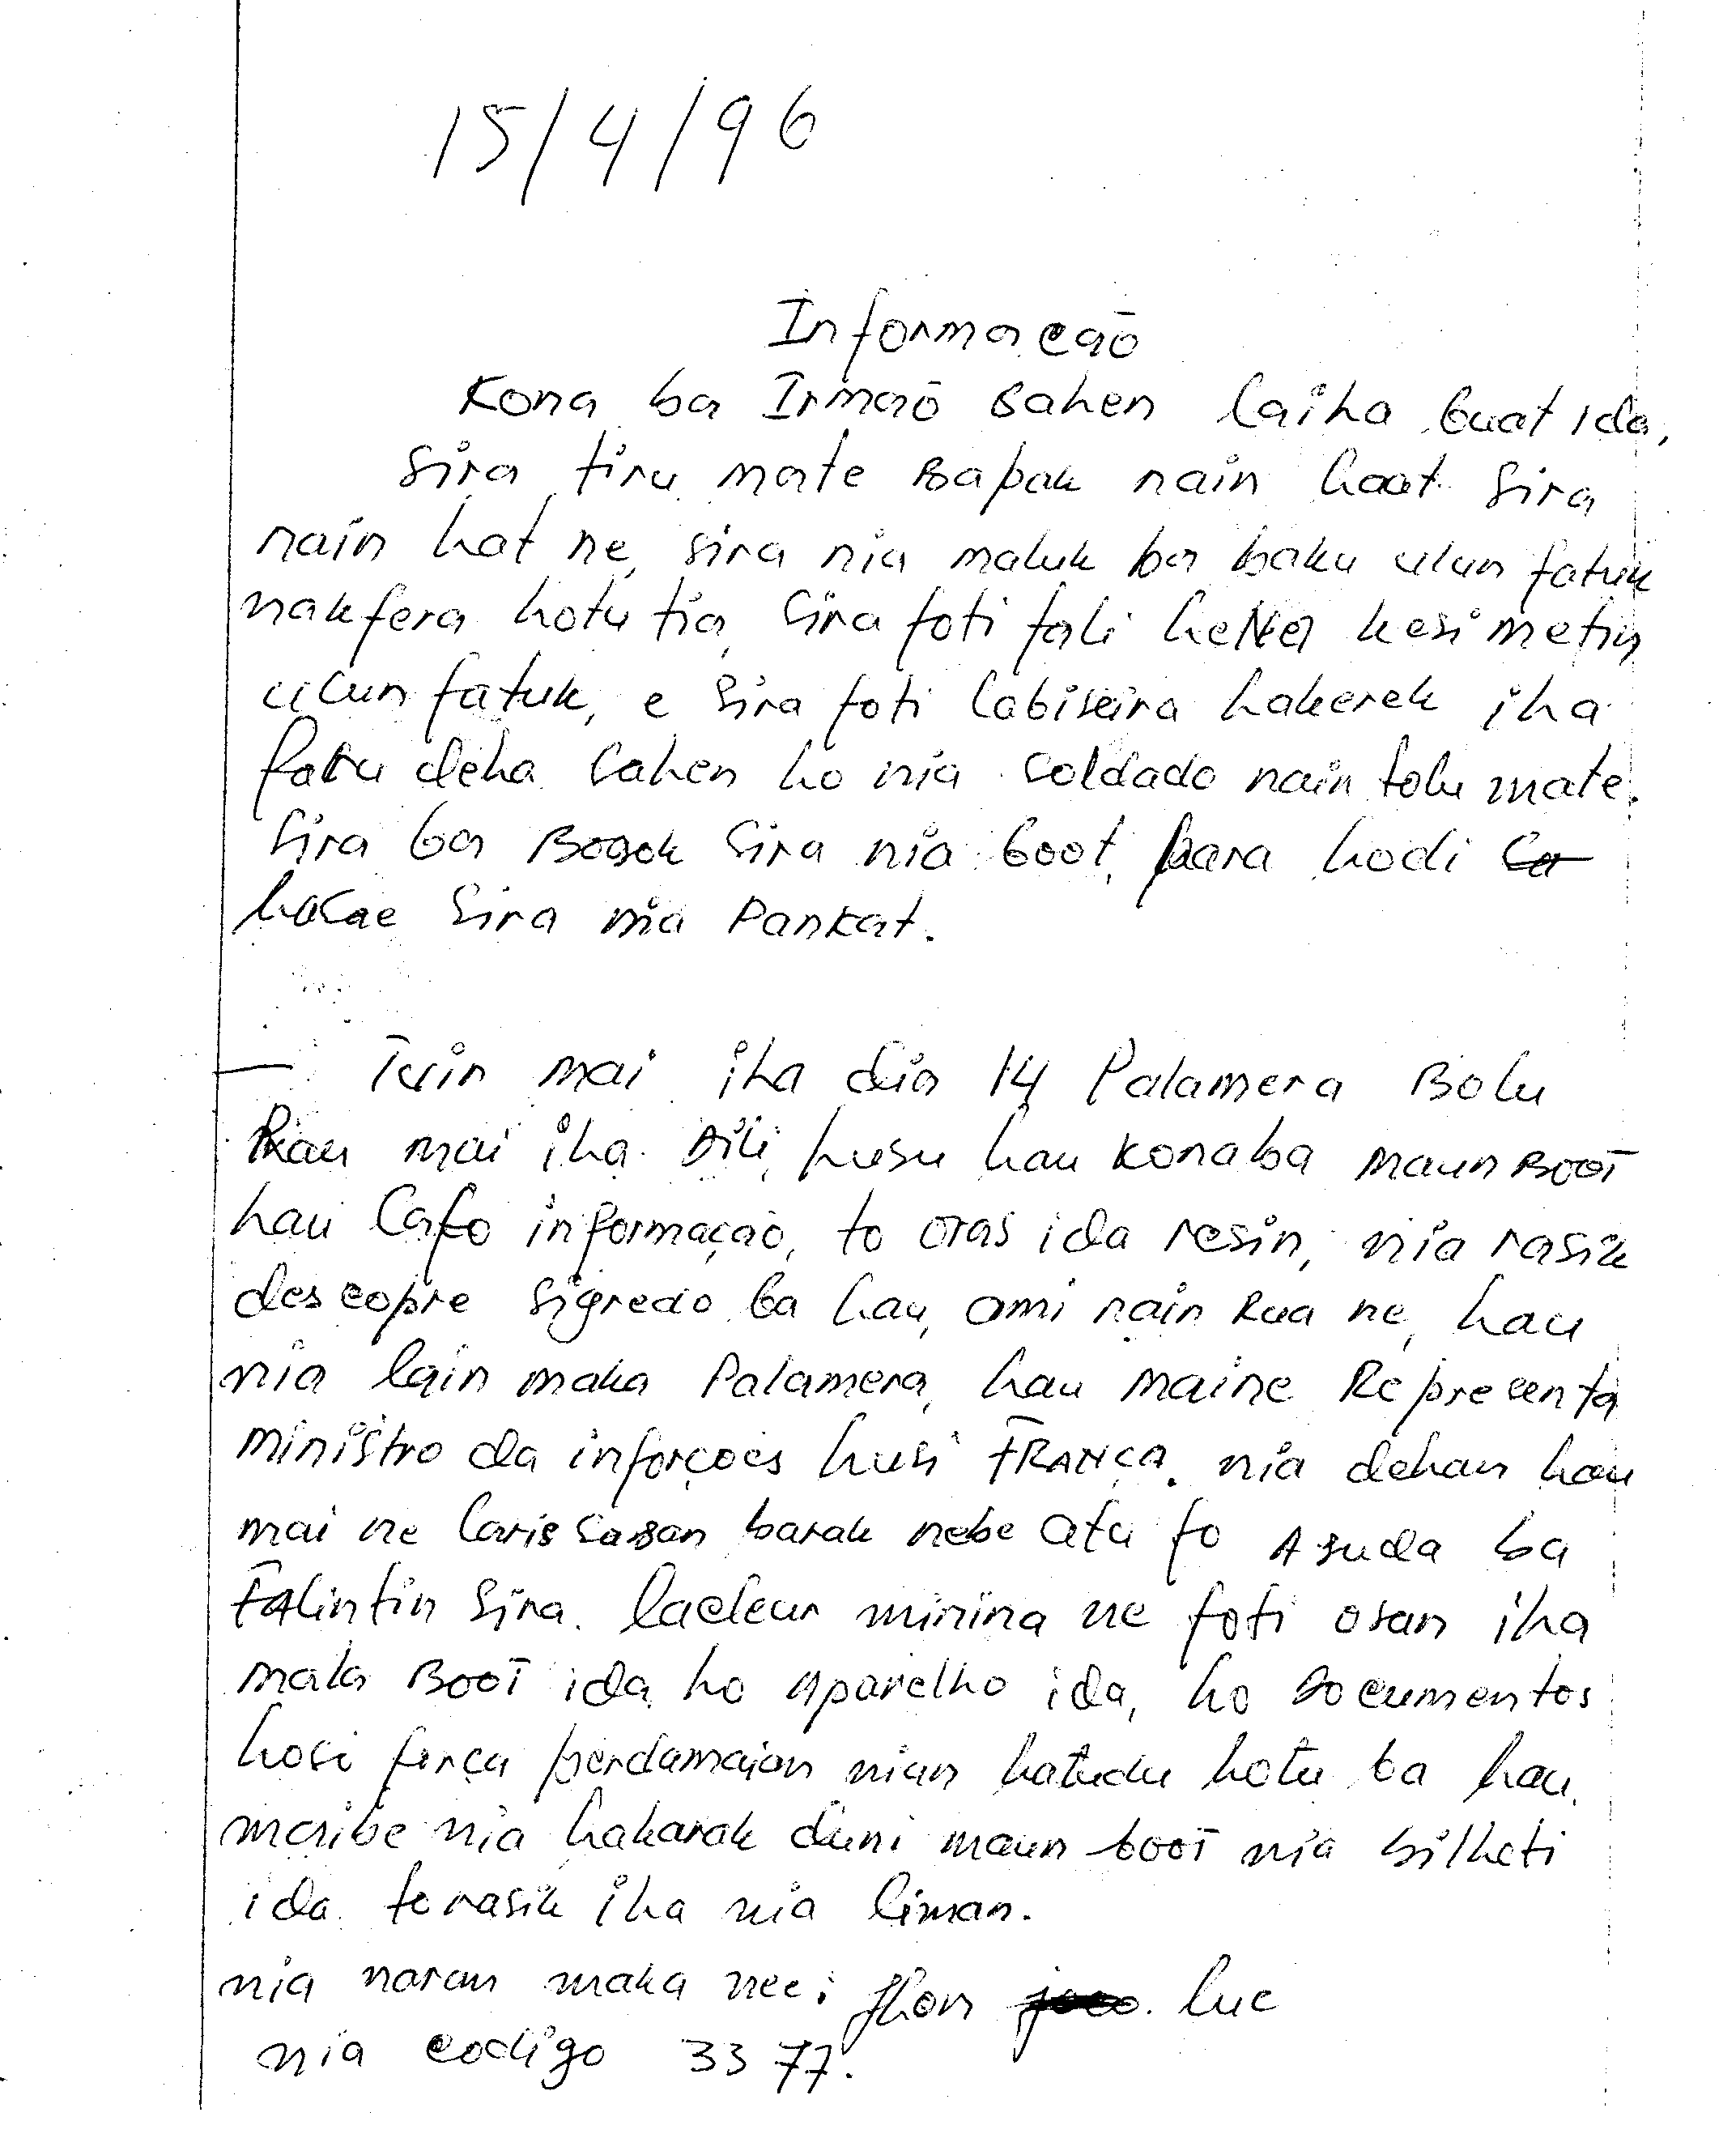 15/4/96
Informação
Kona ba Irmaõ Sahen laiha buat ida,
Sira tiru mate Bapak nain haat Sira
nain hat ne, sira nia maluk ba baku ulun fatuk
nakfera hotu tia, Sira foti fali heNa kesi metin
ulun fatuk, e Sira foti labiseira hakerek iha
fatu deha Sahen ho nia Soldado nain tolu mate.
Sira ba Bosok Sira nia boot, para hodi
hasae Sira nia Pankat.
— Tuir mai iha dia 14 Palamera Bolu
hau mai iha Dili, husu hau Kona ba maun Boot
hau lafo informação, to oras ida resin, nia rasik
descopre Sigredo ba hau, ami nain Rua ne, hau
nia lain maka Palamera, hau maine Representa
ministro da inforçoes husi FRANÇA. nia dehan hau
mai ne laris Sasan barak nebe atu fo Asuda ba
FAlintin Sira. lacleur minina ne foti osan iha
mala Boot ida ho aparelho ida, ho Documentos
hosi força perdamaian nian hatudu hotu ba hau.
maibe nia hakarak duni maun boot nia bilheti
ida to rasik iha nia liman.
nia naran maka nee: Jhon luc
nia codigo 3377.